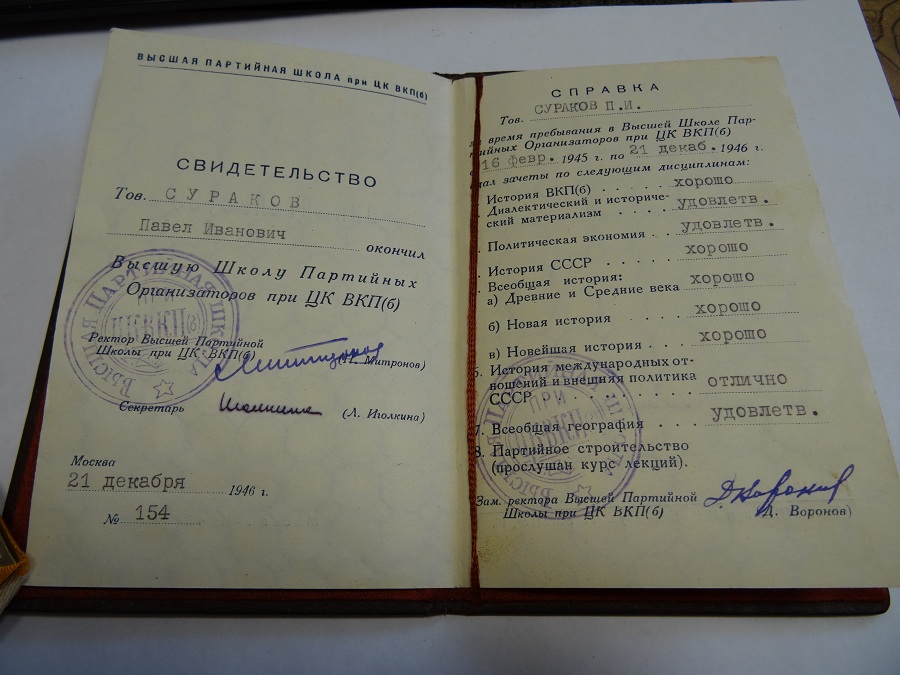 ВЫСШАЯ ПАРТИЙНАЯ ШКОЛА при ЦК ВКП(б)
СВИДЕТЕЛЬСТВО
Тов. СУРАКОВ
Павел Иванович окончил
Высшую Школу Партийных
Организаторов при ЦК ВКП(б)
Ректор Высшей Партийной
Школы при ЦК ВКП(б) (Н. Митронов)
Секретарь Иголкина (Л. Иголкина)
Москва
21 декабря 1946 г.
№ 154
ВЫСШАЯ ПАРТИЙНАЯ ШКОЛА
ПРИ
ЦКВКП(б)
СПРАВКА
Тов. СУРАКОВ П.И.
время пребывания в Высшей Школе Пар-
тийных Организаторов при ЦК ВКП(б)
16 февр. 1945 г. по 21 декаб. 1946 г.
зачеты по следующим дисциплинам:
История ВКП(б) . . . . . хорошо
Диалектический и историче-
ский материализм . . . . удовлетв.
. Политическая экономия . . удовлетв.
. История СССР . . . . . хорошо
. Всеобщая история:
а) Древние и Средние века хорошо
б) Новая история . . . хорошо
в) Новейшая история . . . хорошо
История международных от-
ношений и внешняя политика
СССР . . . . . . . . . отлично
7. Всеобщая география . . . удовлетв.
8. Партийное строительство
(прослушан курс лекций).
Зам. ректора Высшей Партийной
Школы при ЦК ВКП(б) Д. Воронов
Д. Воронов)
ВЫСШАЯ ПАРТИЙНАЯ ШКОЛА
ПРИ
ЦКВКП(б)